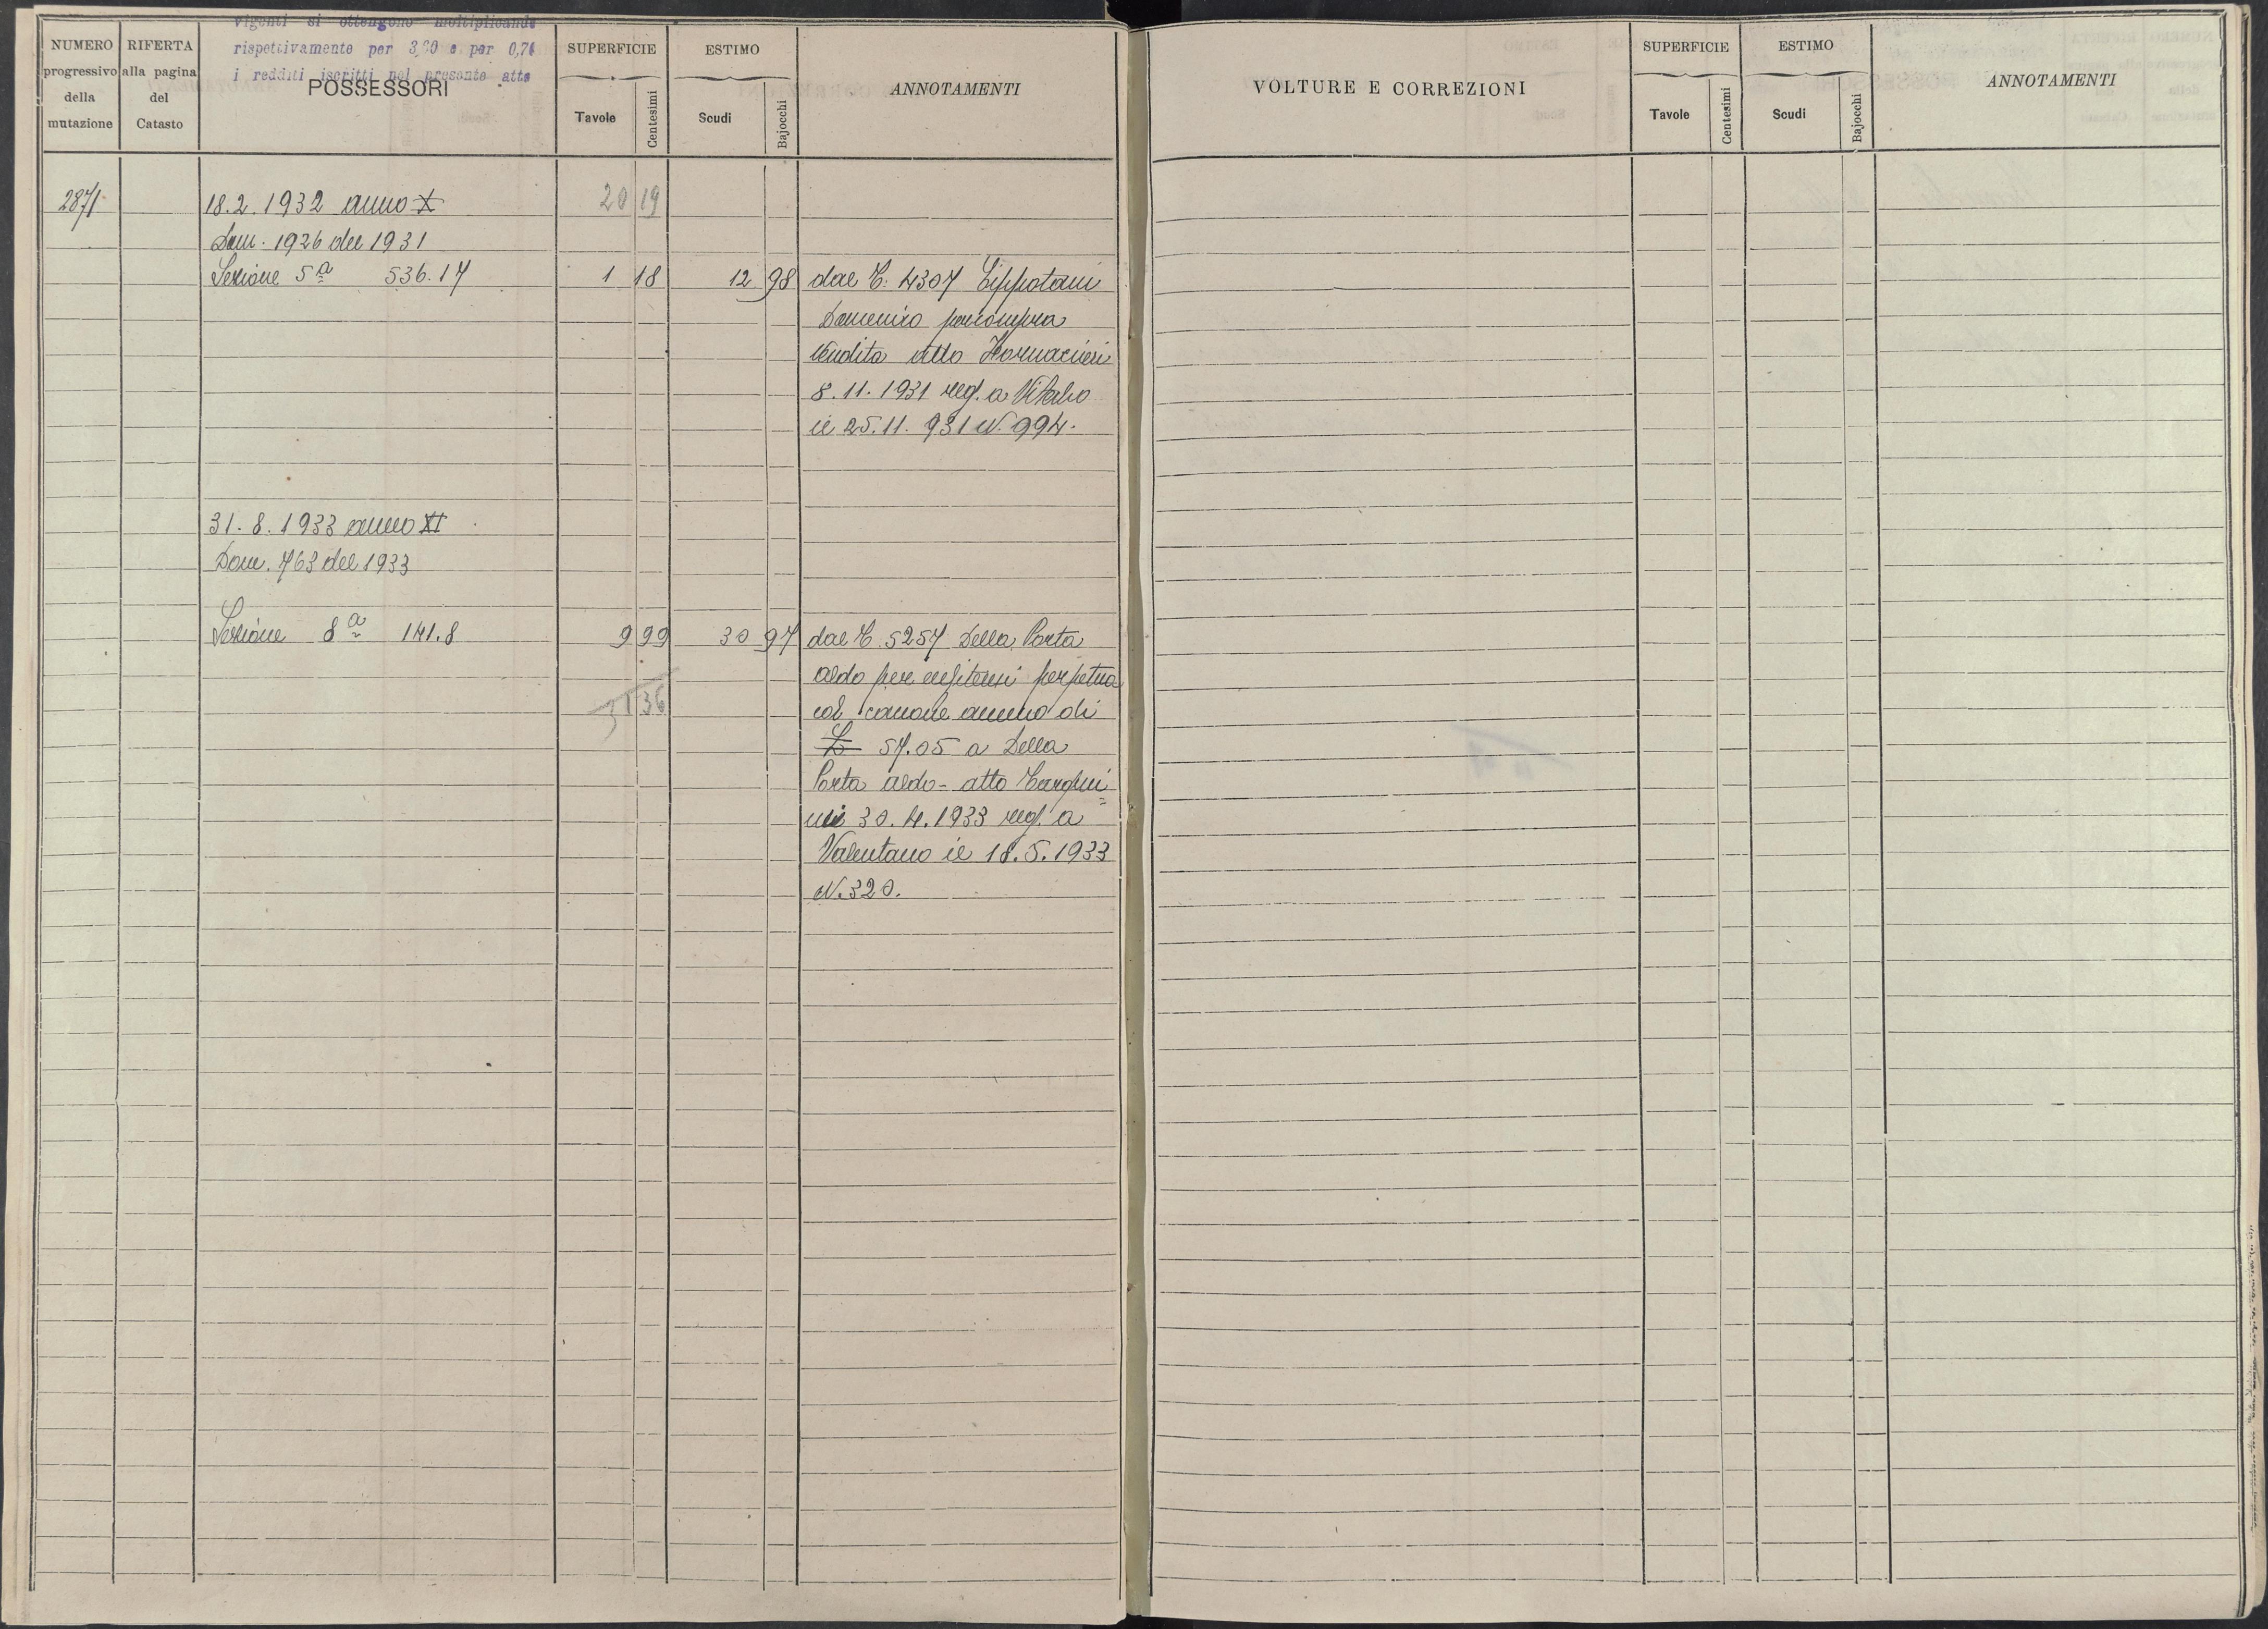 vigenti si ottengono moltiplicando
rispettivamente per 3,60 e per 0,74
i redditi iscritti nel presente atto
NUMERO progressivo della mutazione
RIFERTA alla pagina del Catasto
POSSESSORI
SUPERFICIE
Tavole
Centesimi
ESTIMO
Scudi
Bajocchi
ANNOTAMENTI
VOLTURE E CORREZIONI
SUPERFICIE
Tavole
Centesimi
ESTIMO
Scudi
Bajocchi
ANNOTAMENTI
2871 18.2.1932 anno X 20 19
Dom. 1926 del 1931
Sezione 5ª 536.17 1 18 12 98 dal C. 4307
Domenico per compra
vendita atto
8.11.1931 reg. a Viterbo
il 25.11.931 N. 994.
31.8.1933 anno XI
Dom. 763 del 1933
Sezione 8ª 141.8 9 99 30 97 dal C. 5257 Della Porta
Aldo per enfiteusi perpetua
31 36 col canone annuo di
L 57.05 a Della
Porta Aldo - atto Tarquini=
30.4.1933 reg. a
Valentano il 18.5.1933
N. 320.